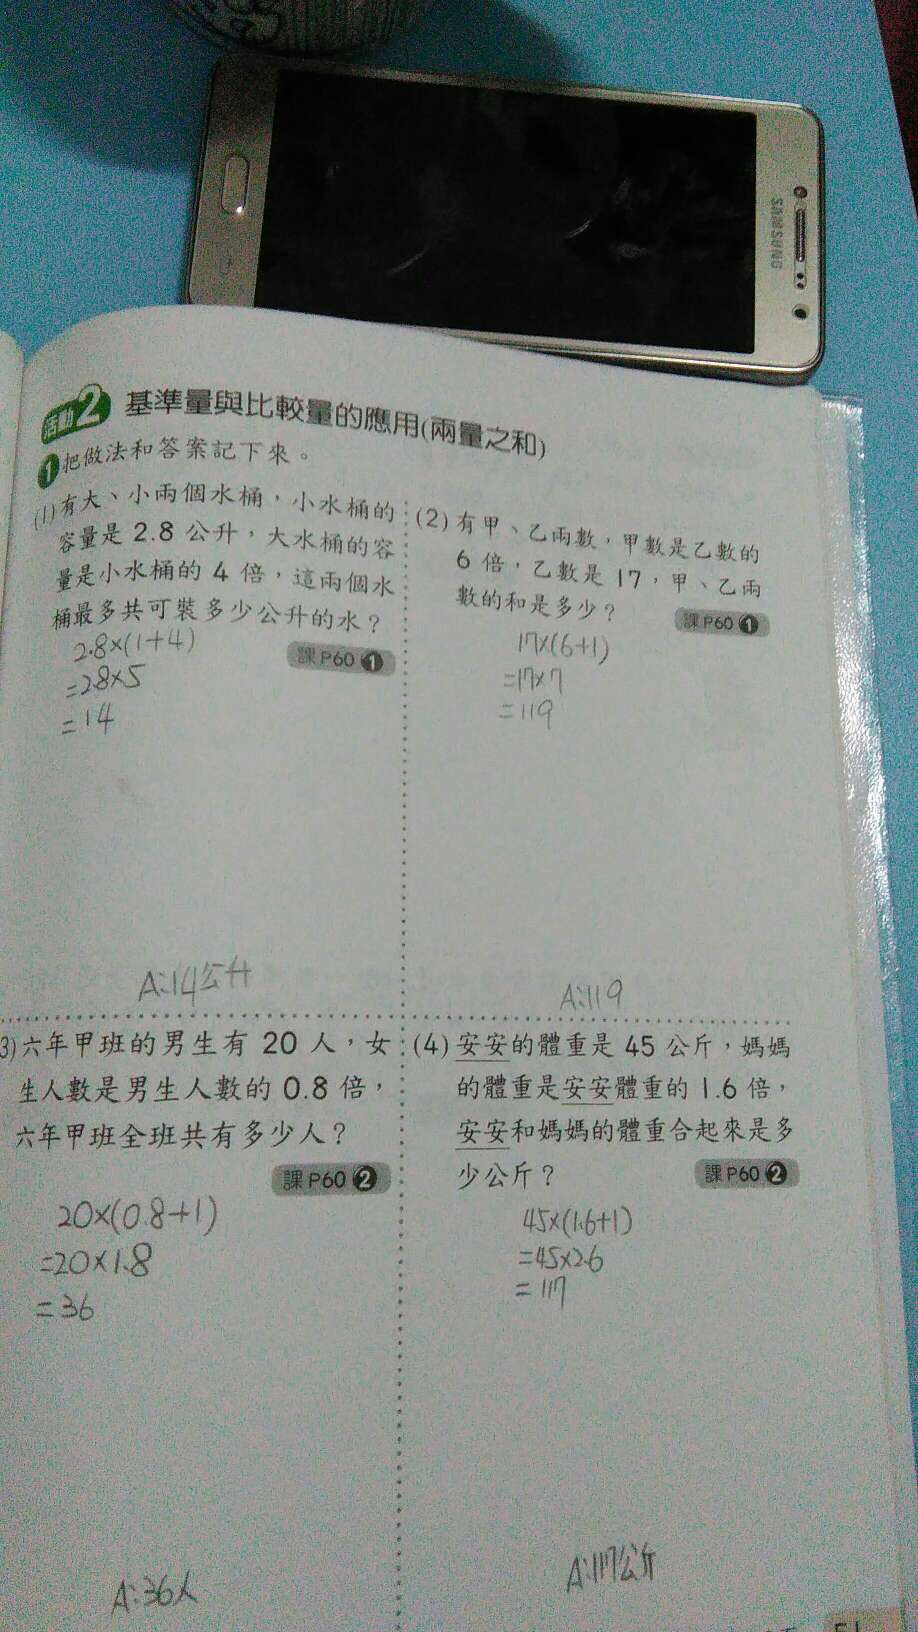 SAMSUNG
活動2 基準量與比較量的應用(兩量之和)
1 把做法和答案記下來。
(1) 有大、小兩個水桶，小水桶的
容量是 2.8 公升，大水桶的容
量是小水桶的 4 倍，這兩個水
桶最多共可裝多少公升的水？
課P60 1
2.8×(1+4)
=2.8×5
=14
A:14公升
(2) 有甲、乙兩數，甲數是乙數的
6 倍，乙數是 17，甲、乙兩
數的和是多少？
課P60 1
17×(6+1)
=17×7
=119
A:119
3) 六年甲班的男生有 20 人，女
生人數是男生人數的 0.8 倍，
六年甲班全班共有多少人？
課P60 2
20×(0.8+1)
=20×1.8
=36
A:36人
(4) 安安的體重是 45 公斤，媽媽
的體重是安安體重的 1.6 倍，
安安和媽媽的體重合起來是多
少公斤？
課P60 2
45×(1.6+1)
=45×2.6
=117
A:117公斤